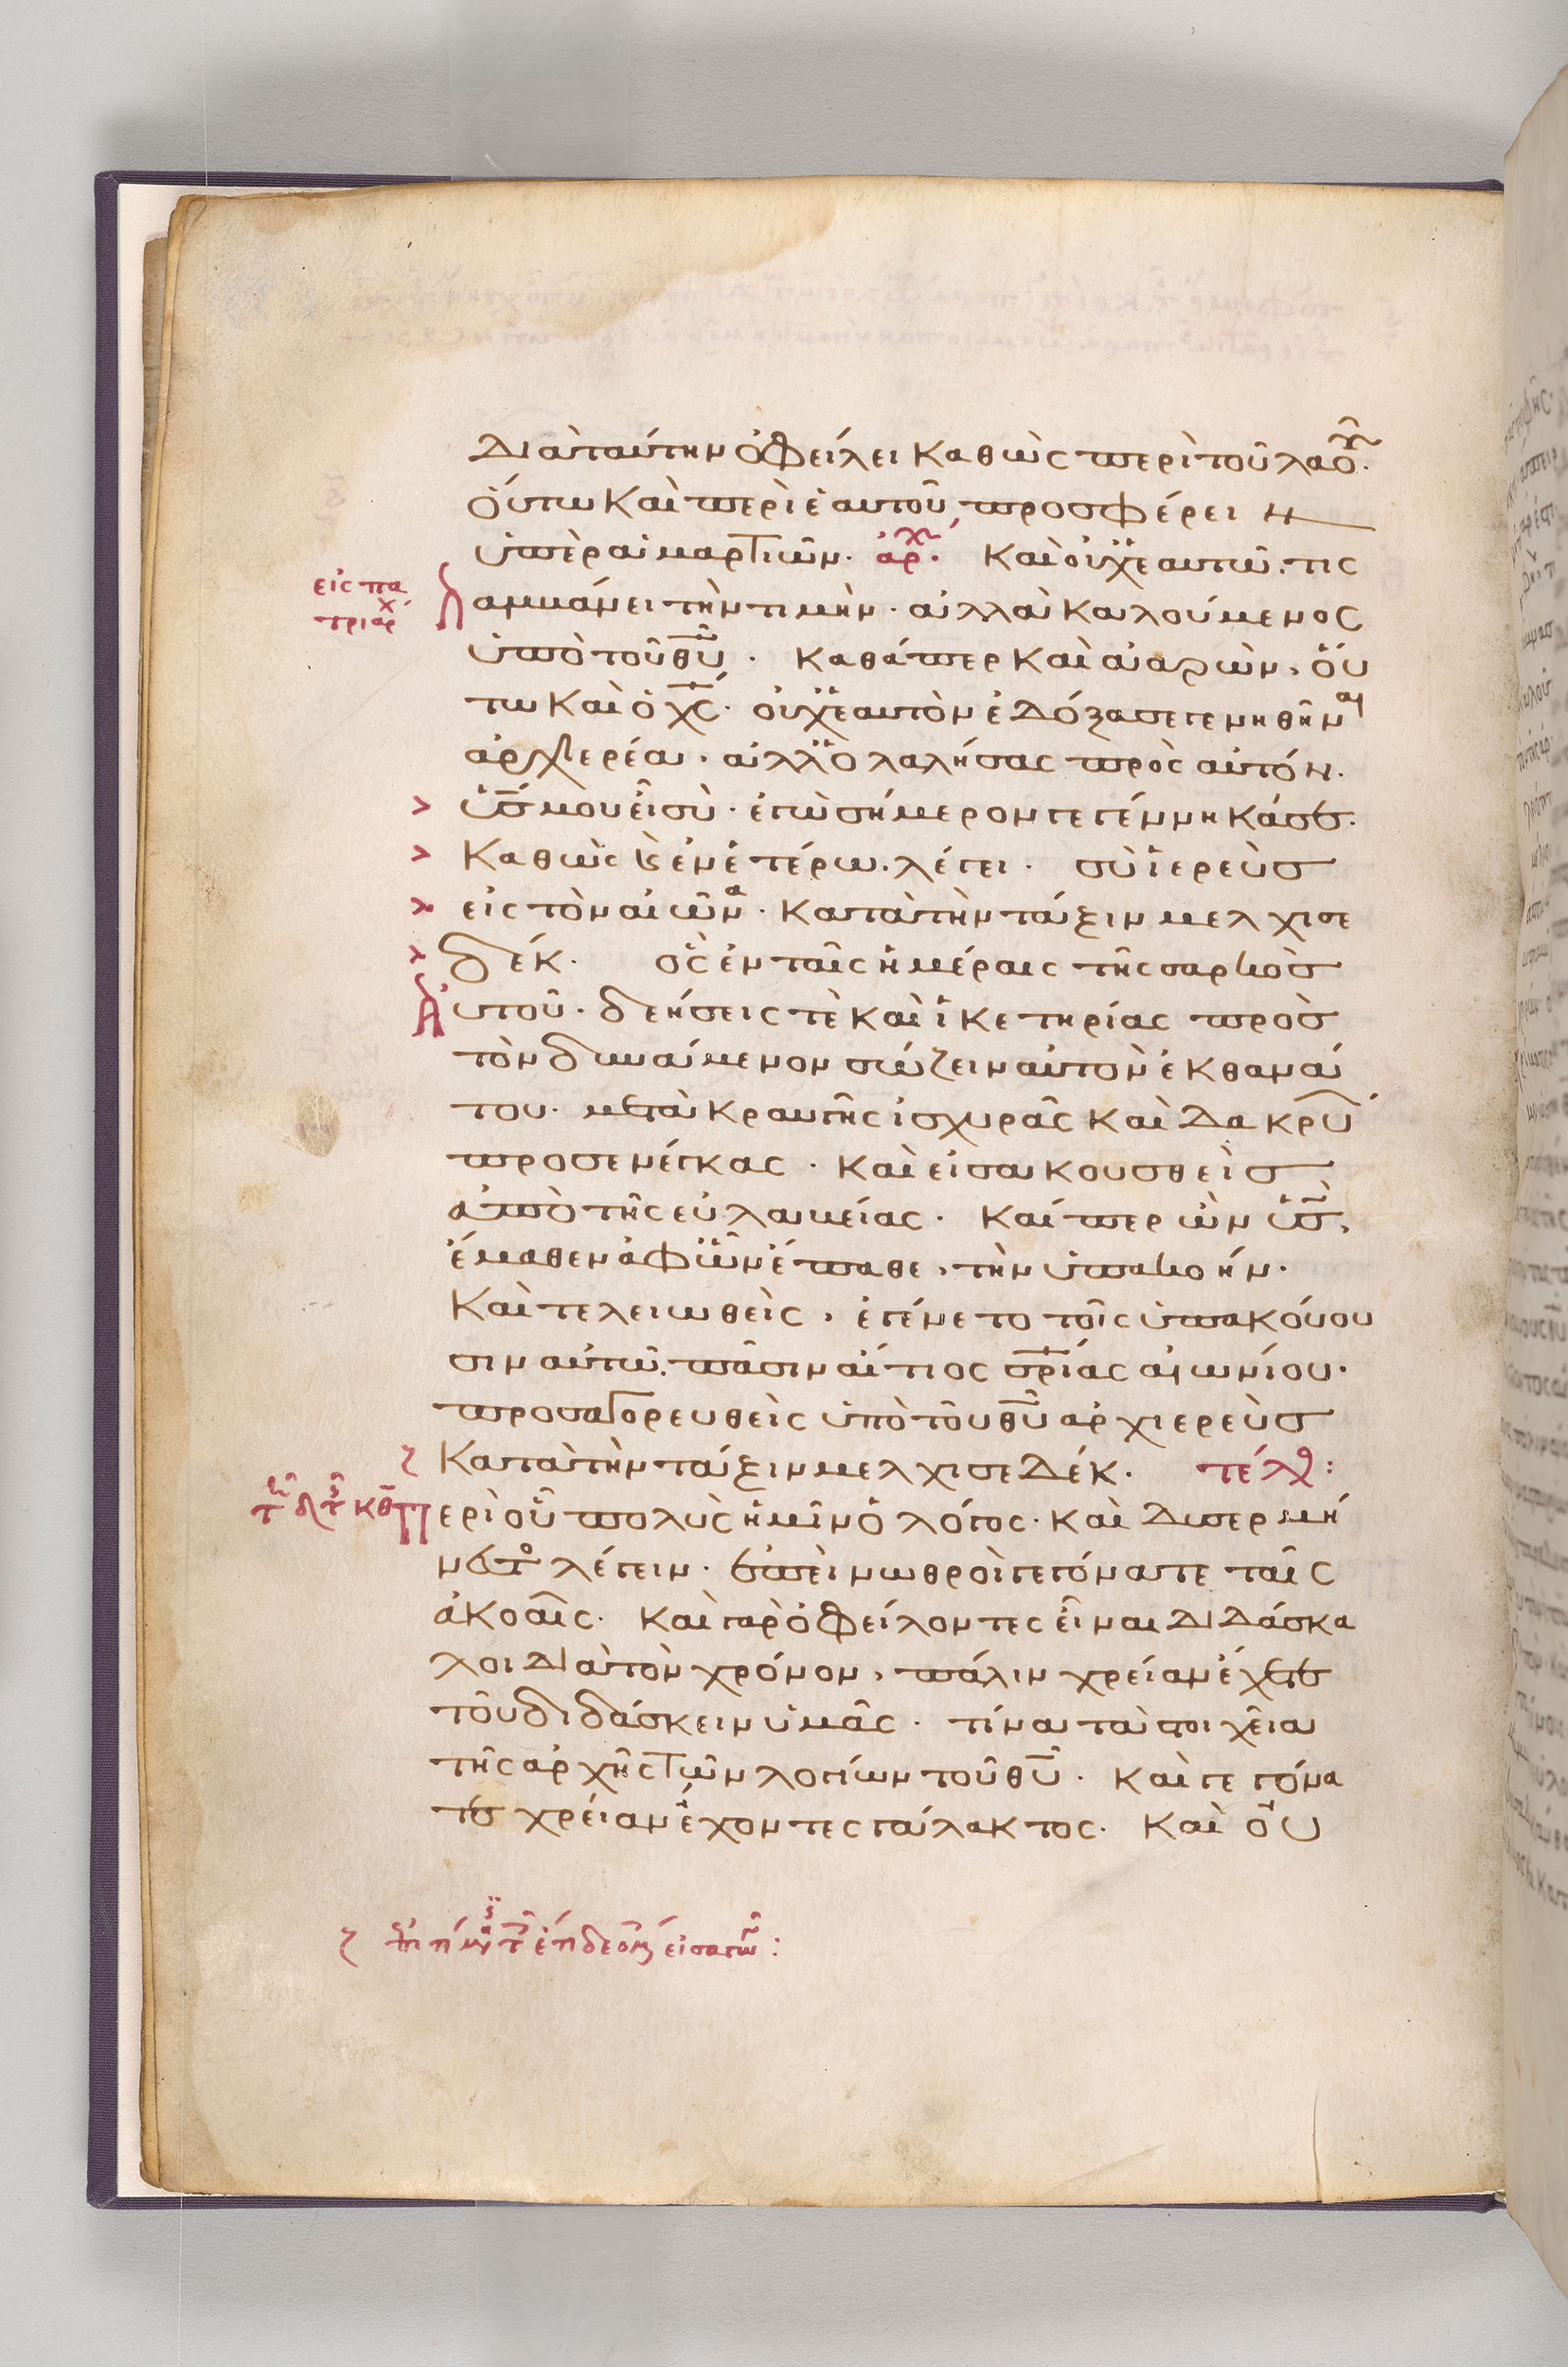 διὰ ταύτην ὀφείλει καθὼς περὶ τοῦ λαοῦ·
οὕτω καὶ περὶ ἑαυτοῦ προσφέρειν
ὑπὲρ ἁμαρτιῶν· ἀρχ· καὶ οὐχ ἑαυτῷ τις
εἰς πα
τριάρχ
λαμβάνει τὴν τιμὴν· ἀλλὰ καλούμενος
ὑπὸ τοῦ θῦ· καθάπερ καὶ ἀαρὼν, οὕ
τω καὶ ὁ χς· οὐχ ἑαυτὸν ἐδόξασε γενηθῆναι
ἀρχιερέα· ἀλλ' ὁ λαλήσας πρὸς αὐτόν·
> υς μου εἶ σὺ· ἐγὼ σήμερον γεγέννηκά σε·
> καθὼς καὶ ἐν ἑτέρῳ λέγει· σὺ ἱερεὺς
> εἰς τὸν αἰῶνα· κατὰ τὴν τάξιν μελχισε
> δέκ· ὃς ἐν ταῖς ἡμέραις τῆς σαρκὸς
αὐτοῦ· δεήσεις τὲ καὶ ἱκετηρίας πρὸς
τὸν δυνάμενον σώζειν αὐτὸν ἐκ θανά
του· μετὰ κραυγῆς ἰσχυρᾶς καὶ δακρύ
προσενέγκας· καὶ εἰσακουσθεὶς
ἀπὸ τῆς εὐλαβείας· καίπερ ὢν υς,
ἔμαθεν ἀφ' ὧν ἔπαθε, τὴν ὑπακοήν·
καὶ τελειωθεὶς, ἐγένετο τοῖς ὑπακούου
σιν αὐτῷ πᾶσιν αἴτιος σρίας αἰωνίου·
προσαγορευθεὶς ὑπὸ τοῦ θῦ ἀρχιερεὺς
κατὰ τὴν τάξιν μελχισεδέκ· τέλος:
περὶ οὗ πολὺς ἡμῖν ὁ λόγος· καὶ δυσερμή
νευτος λέγειν· ἐπεὶ νωθροὶ γεγόνατε ταῖς
ἀκοαῖς· καὶ γὰρ ὀφείλοντες εἶναι διδάσκα
λοι διὰ τὸν χρόνον, πάλιν χρείαν ἔχετε
τοῦ διδάσκειν ὑμᾶς· τίνα τὰ στοιχεῖα
τῆς ἀρχῆς τῶν λογίων τοῦ θῦ· καὶ γεγόνα
τε χρείαν ἔχοντες γάλακτος· καὶ οὐ